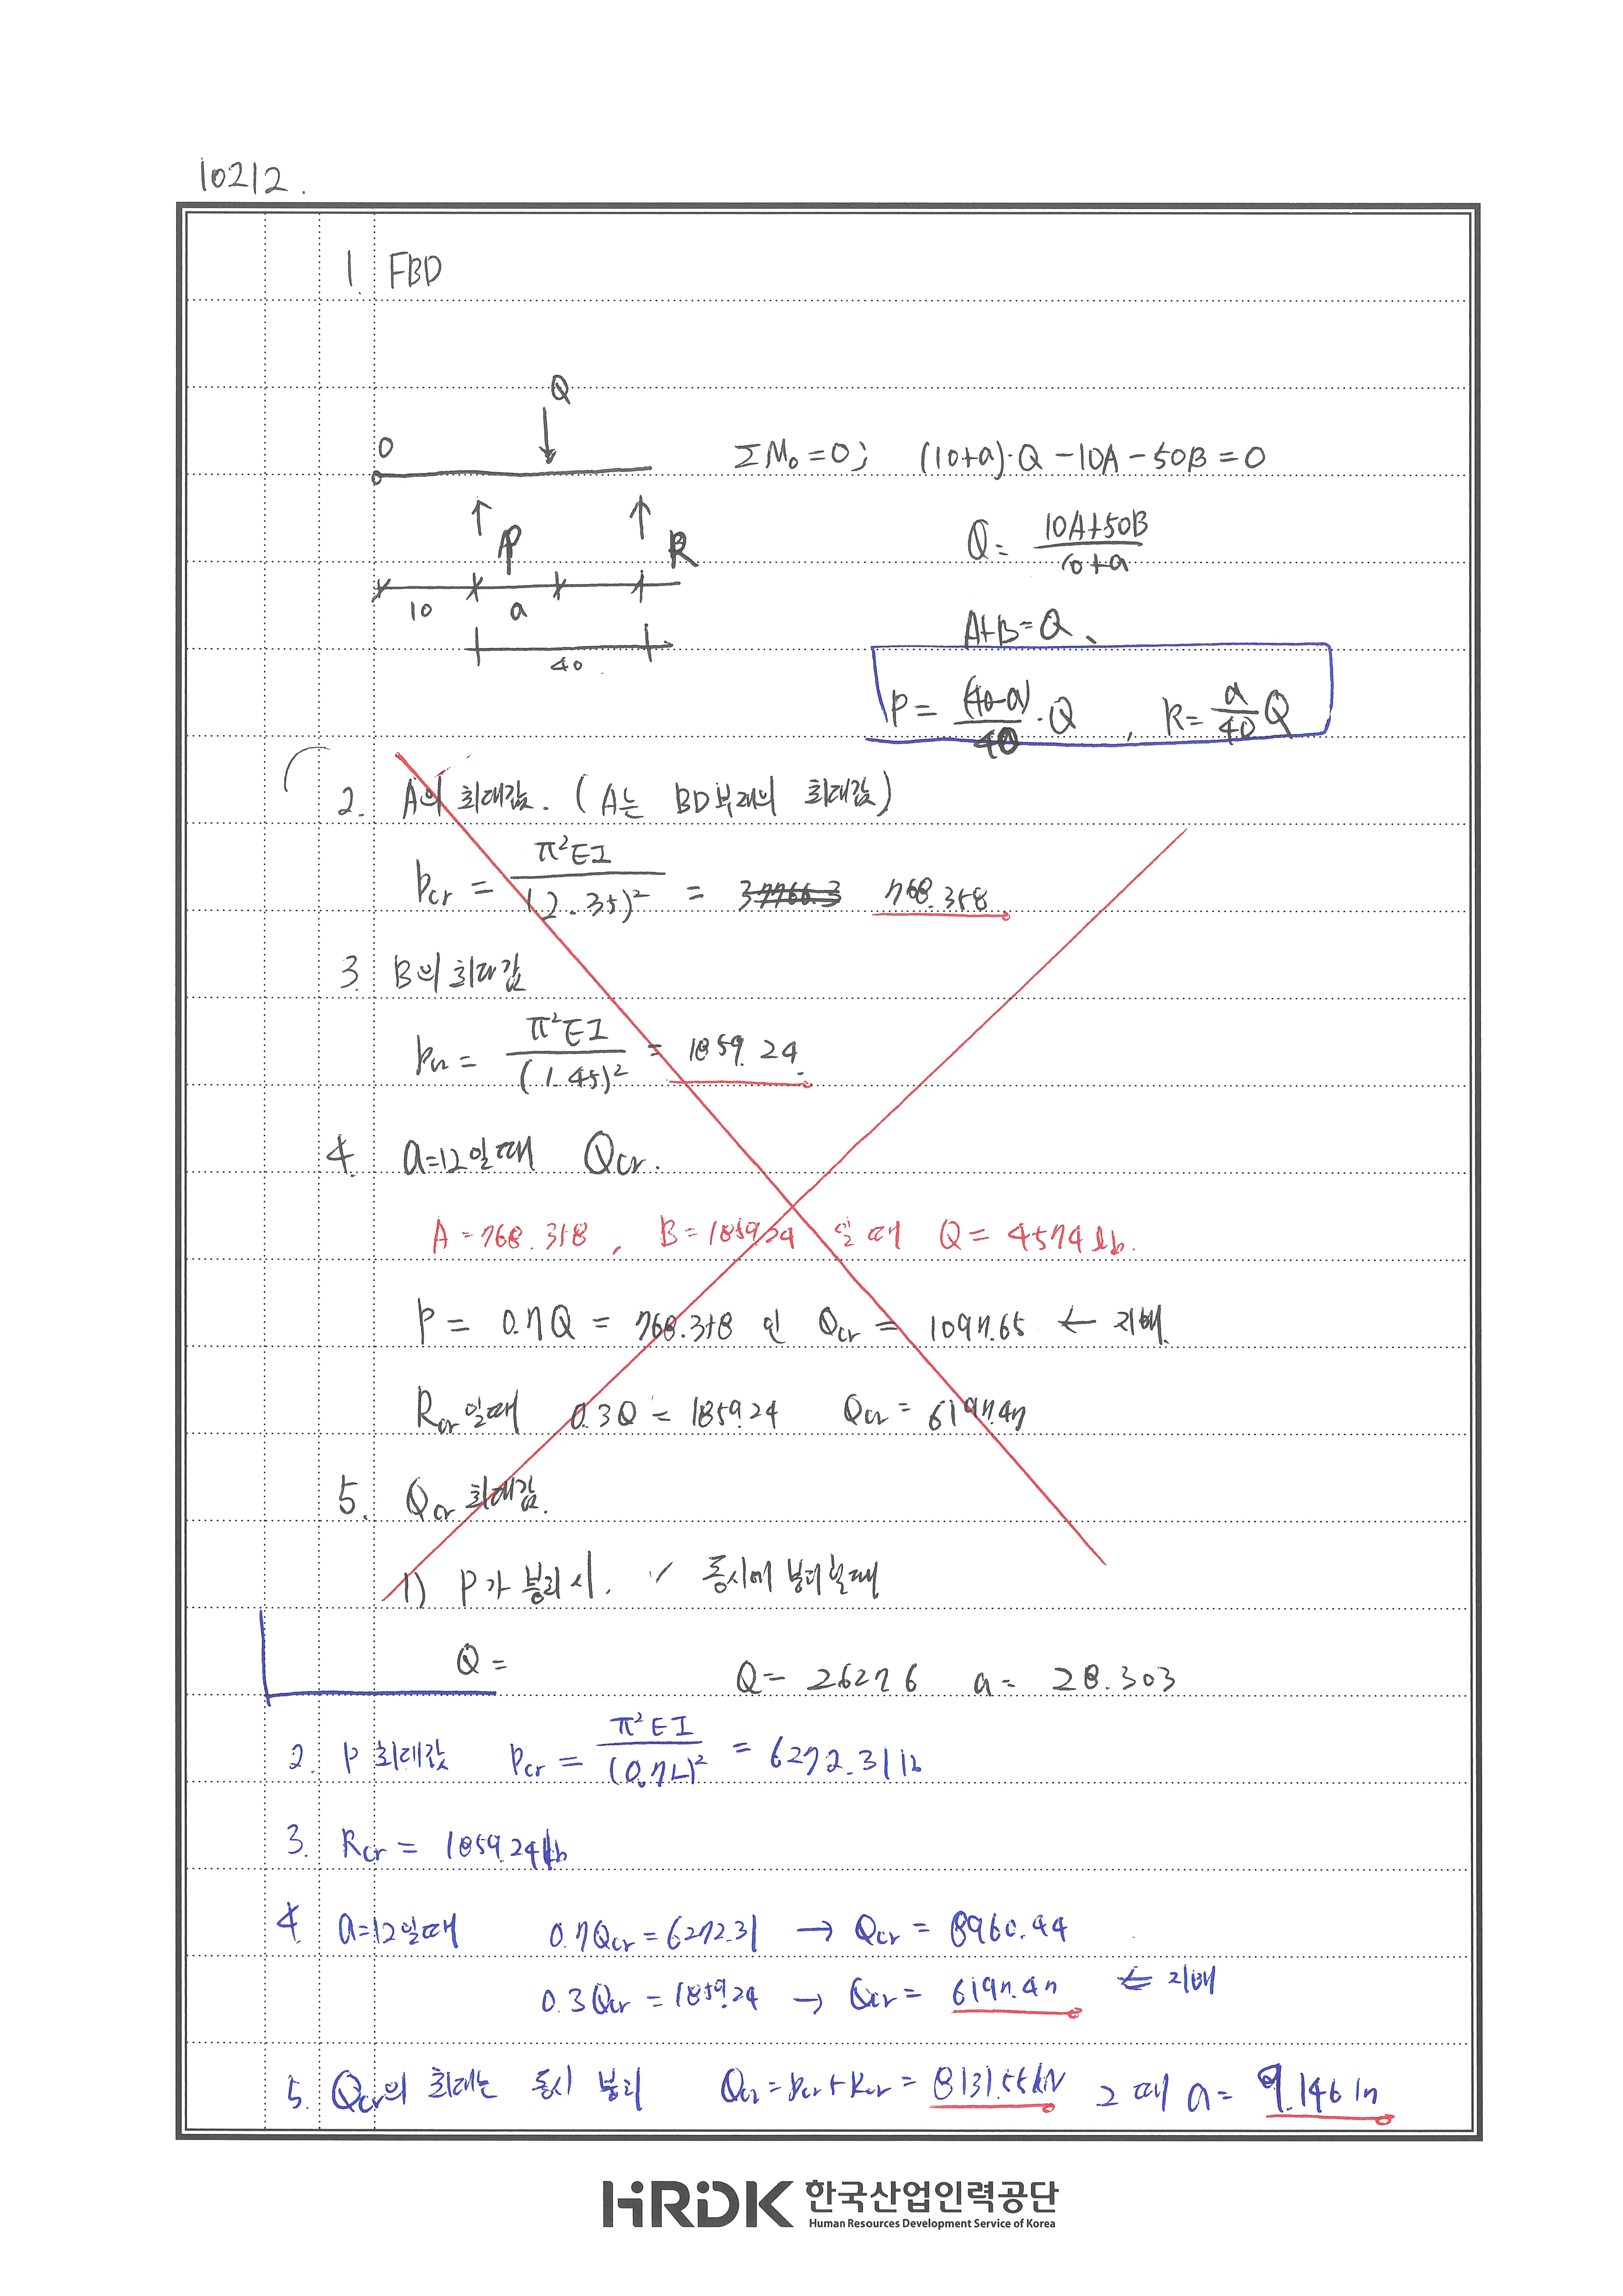 10212.
1. FBD
Q
O
ΣM₀=0; (10+a)·Q-10A-50B=0
P R
Q= (10A+50B)/(10+a)
10 a
A+B=Q、
40
P= (40-a)/40 ·Q , R= a/40 Q
2. A의 최대값. (A는 BD부재의 최대값)
Pcr = π²EI/(2·35)² = 768.358
3. B의 최대값
Pcr = π²EI/(1.45)² = 1859.24
4. a=12일때 Qcr.
A=768.358, B=1859.24 일때 Q=4574lb.
P= 0.7Q = 768.358 인 Qcr = 1097.65 ← 지배.
Rcr일때 0.3Q=1859.24 Qcr= 6197.47
5. Qcr 최대값.
1) P가 붕괴시. 동시에 붕괴할때
Q= Q= 2627.6 a= 28.303
2. P 최대값 Pcr = π²EI/(0.7L)² = 6272.31lb
3. Rcr = 1859.24lb
4 a=12일때 0.7Qcr=6272.31 → Qcr = 8960.44
0.3Qcr=1859.24 → Qcr= 6197.47 ← 지배
5. Qcr의 최대는 동시 붕괴 Qcr=Pcr+Rcr= 8131.55kN 그때 a= 9.146in
HRDK 한국산업인력공단
Human Resources Development Service of Korea